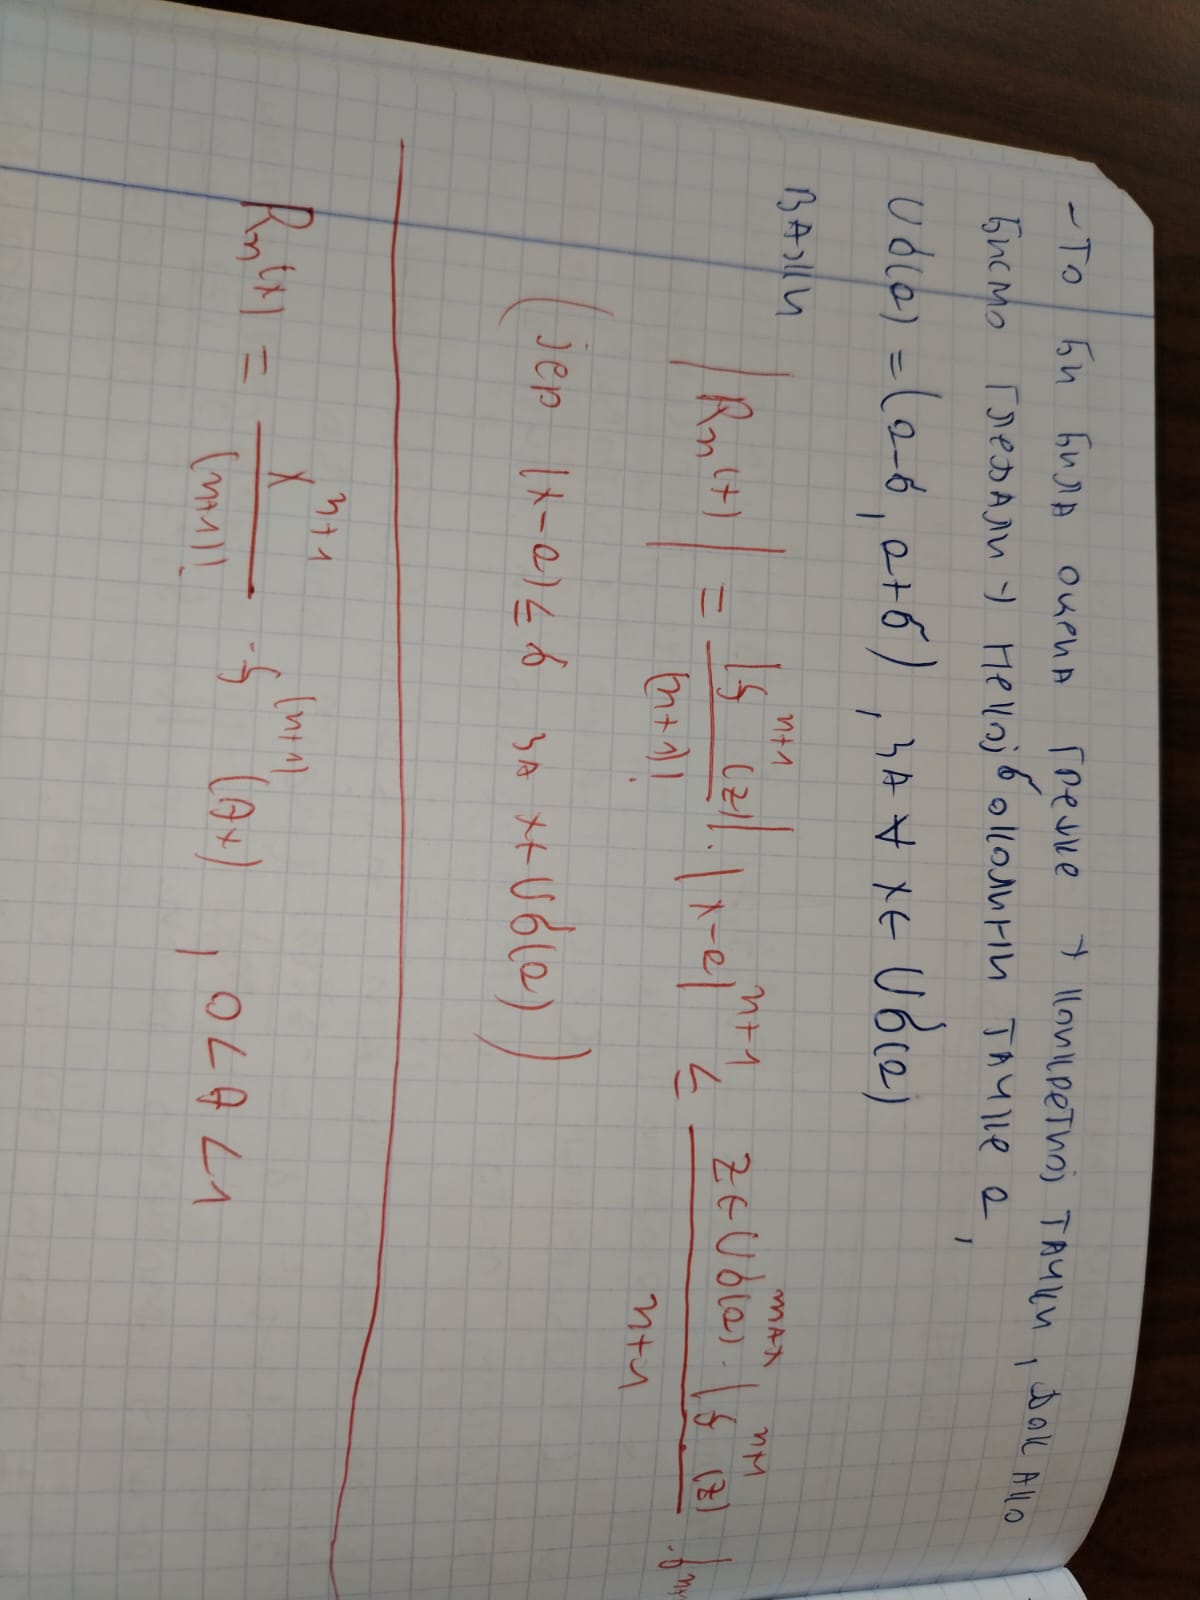 - То би била оцена грешке у конкретној тачки, док ако
бисмо гледали у некој δ околини тачке a,
Uδ(a) = (a-δ, a+δ), за ∀ x ∈ Uδ(a)
важи
|Rn(x)| = |f^{n+1}(z)| / (n+1)! · |x-a|^{n+1} ≤ max z∈Uδ(a) · |f^{n+1}(z)| / n+1 · δ^{n+1}
(јер |x-a| ≤ δ за x ∈ Uδ(a))
Rn(x) = x^{n+1} / (n+1)! · f^{(n+1)}(θx), 0<θ<1